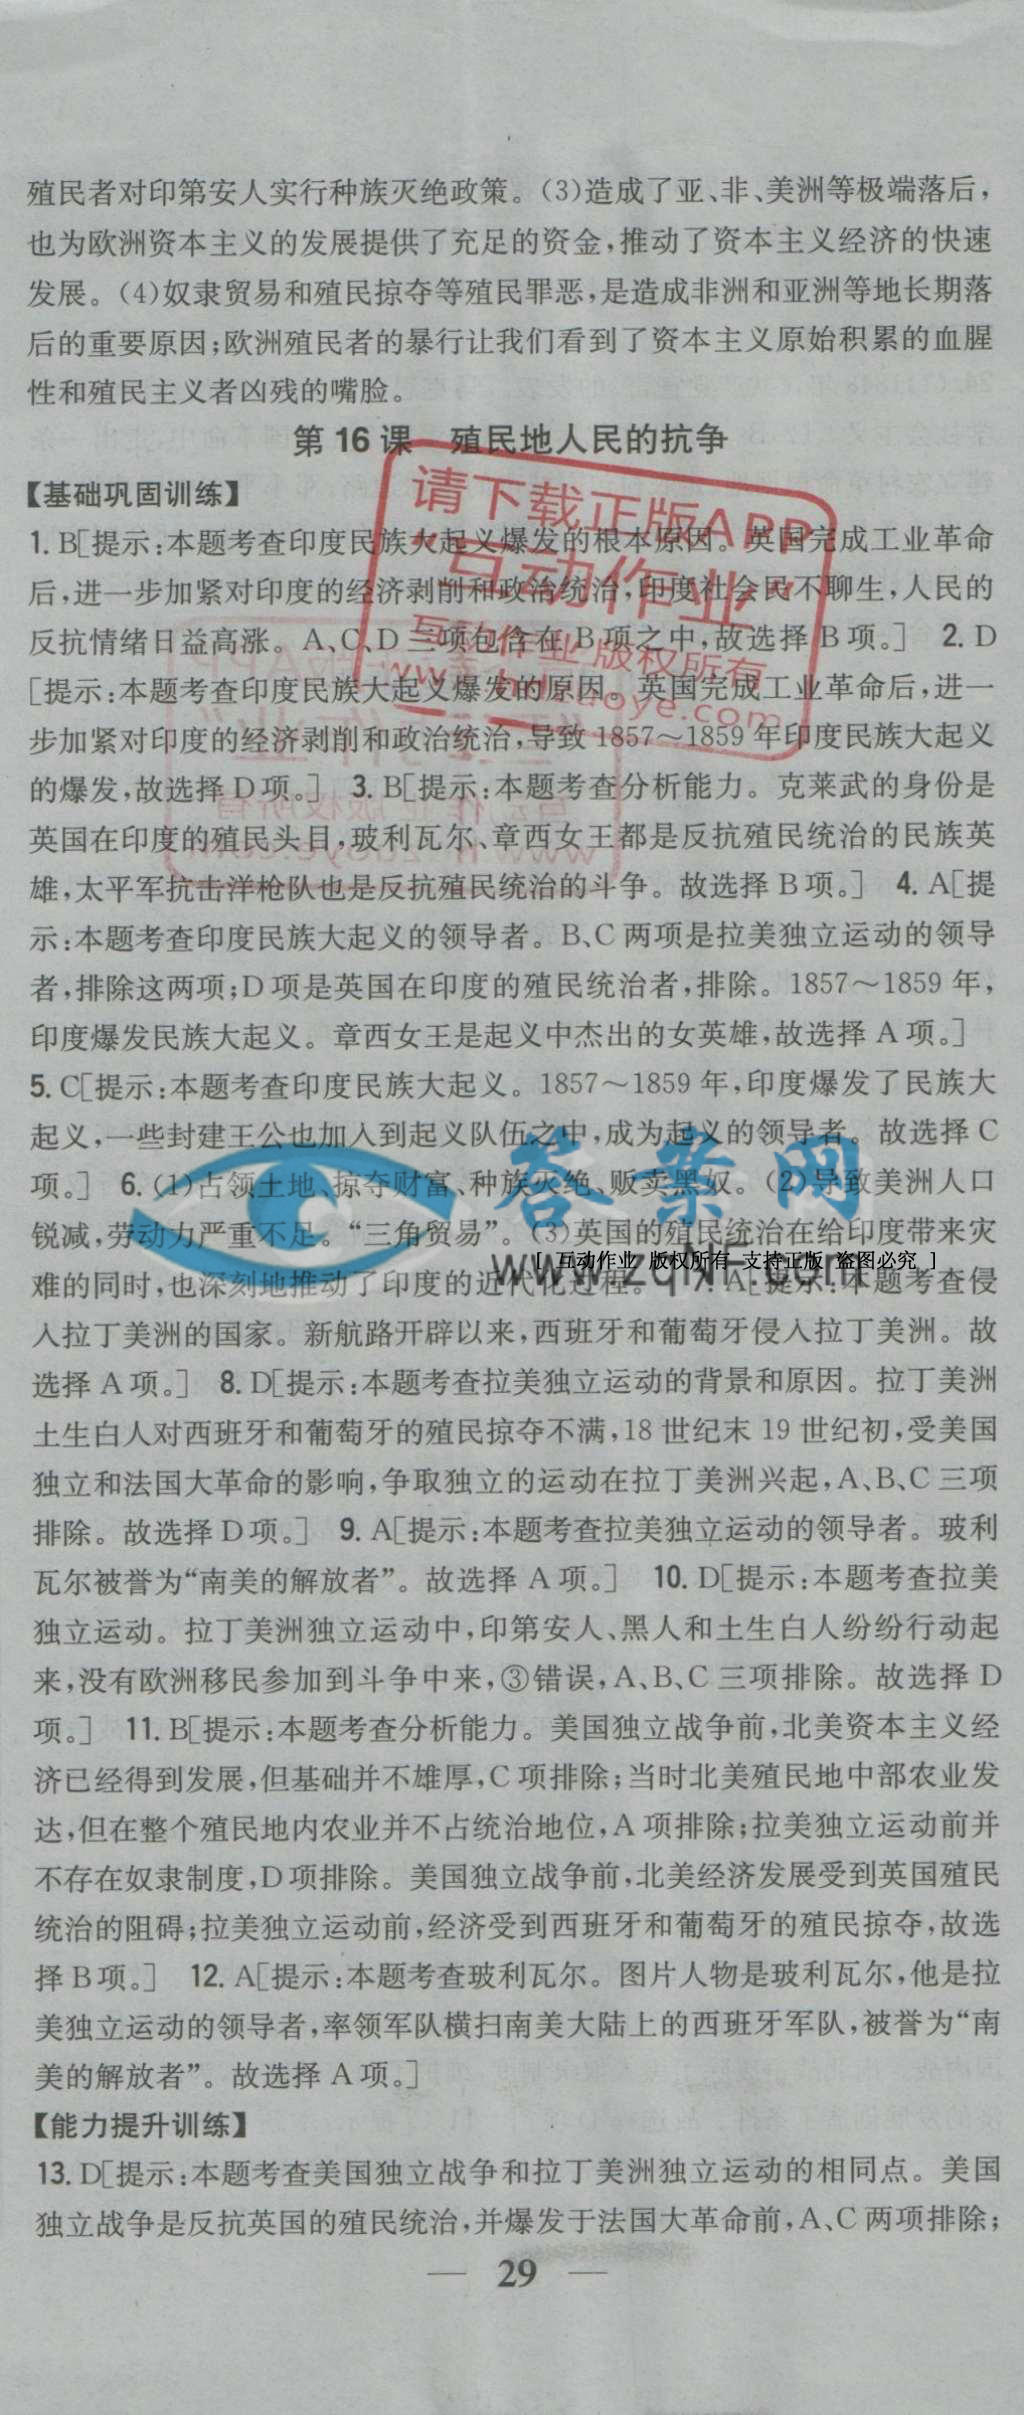 殖民者对印第安人实行种族灭绝政策。(3)造成了亚、非、美洲等极端落后,
也为欧洲资本主义的发展提供了充足的资金,推动了资本主义经济的快速
发展。(4)奴隶贸易和殖民掠夺等殖民罪恶,是造成非洲和亚洲等地长期落
后的重要原因;欧洲殖民者的暴行让我们看到了资本主义原始积累的血腥
性和殖民主义者凶残的嘴脸。
第 16 课 殖民地人民的抗争
【基础巩固训练】
1. B[提示:本题考查印度民族大起义爆发的根本原因。英国完成工业革命
后,进一步加紧对印度的经济剥削和政治统治,印度社会民不聊生,人民的
反抗情绪日益高涨。A、C、D 三项包含在 B 项之中,故选择 B 项。] 2. D
[提示:本题考查印度民族大起义爆发的原因。英国完成工业革命后,进一
步加紧对印度的经济剥削和政治统治,导致 1857~1859 年印度民族大起义
的爆发,故选择 D 项。] 3. B[提示:本题考查分析能力。克莱武的身份是
英国在印度的殖民头目,玻利瓦尔、章西女王都是反抗殖民统治的民族英
雄,太平军抗击洋枪队也是反抗殖民统治的斗争。故选择 B 项。] 4. A[提
示:本题考查印度民族大起义的领导者。B、C 两项是拉美独立运动的领导
者,排除这两项;D 项是英国在印度的殖民统治者,排除。1857~1859 年,
印度爆发民族大起义。章西女王是起义中杰出的女英雄,故选择 A 项。]
5. C[提示:本题考查印度民族大起义。1857~1859 年,印度爆发了民族大
起义,一些封建王公也加入到起义队伍之中,成为起义的领导者。故选择 C
项。] 6. (1)占领土地、掠夺财富、种族灭绝、贩卖黑奴。(2)导致美洲人口
锐减,劳动力严重不足。“三角贸易”。(3)英国的殖民统治在给印度带来灾
难的同时,也深刻地推动了印度的近代化过程。 7. A[提示:本题考查侵
入拉丁美洲的国家。新航路开辟以来,西班牙和葡萄牙侵入拉丁美洲。故
选择 A 项。] 8. D[提示:本题考查拉美独立运动的背景和原因。拉丁美洲
土生白人对西班牙和葡萄牙的殖民掠夺不满,18 世纪末 19 世纪初,受美国
独立和法国大革命的影响,争取独立的运动在拉丁美洲兴起,A、B、C 三项
排除。故选择 D 项。] 9. A[提示:本题考查拉美独立运动的领导者。玻利
瓦尔被誉为“南美的解放者”。故选择 A 项。] 10. D[提示:本题考查拉美
独立运动。拉丁美洲独立运动中,印第安人、黑人和土生白人纷纷行动起
来,没有欧洲移民参加到斗争中来,③错误,A、B、C 三项排除。故选择 D
项。] 11. B[提示:本题考查分析能力。美国独立战争前,北美资本主义经
济已经得到发展,但基础并不雄厚,C 项排除;当时北美殖民地中部农业发
达,但在整个殖民地内农业并不占统治地位,A 项排除;拉美独立运动前并
不存在奴隶制度,D 项排除。美国独立战争前,北美经济发展受到英国殖民
统治的阻碍;拉美独立运动前,经济受到西班牙和葡萄牙的殖民掠夺,故选
择 B 项。] 12. A[提示:本题考查玻利瓦尔。图片人物是玻利瓦尔,他是拉
美独立运动的领导者,率领军队横扫南美大陆上的西班牙军队,被誉为“南
美的解放者”。故选择 A 项。]
【能力提升训练】
13. D[提示:本题考查美国独立战争和拉丁美洲独立运动的相同点。美国
独立战争是反抗英国的殖民统治,并爆发于法国大革命前,A、C 两项排除;
— 29 —
请下载正版APP
“互动作业”
互动作业 版权所有
答案网
[ 互动作业 版权所有 支持正版 盗图必究 ]